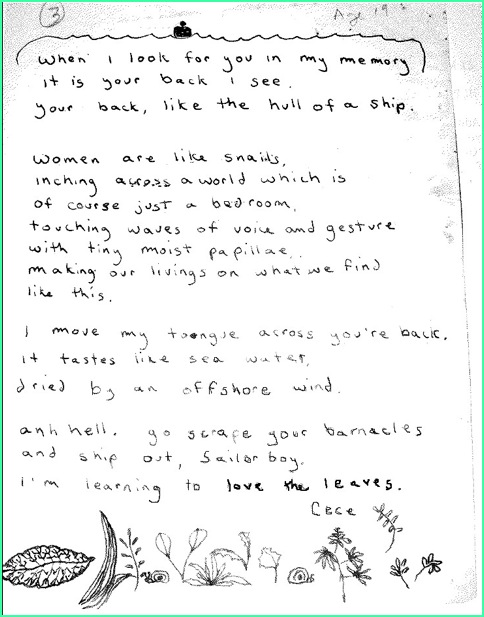 3
Age 19
When I look for you in my memory
it is your back I see.
your back, like the hull of a ship.
Women are like snails,
inching across a world which is
of course just a bedroom,
touching waves of voice and gesture
with tiny moist papillae..
making our livings on what we find
like this.
I move my toongue across you're back.
it tastes like sea water,
dried by an offshore wind.
anh hell. go scrape your barnacles
and ship out, Sailor boy.
I'm learning to love the leaves.
Cece